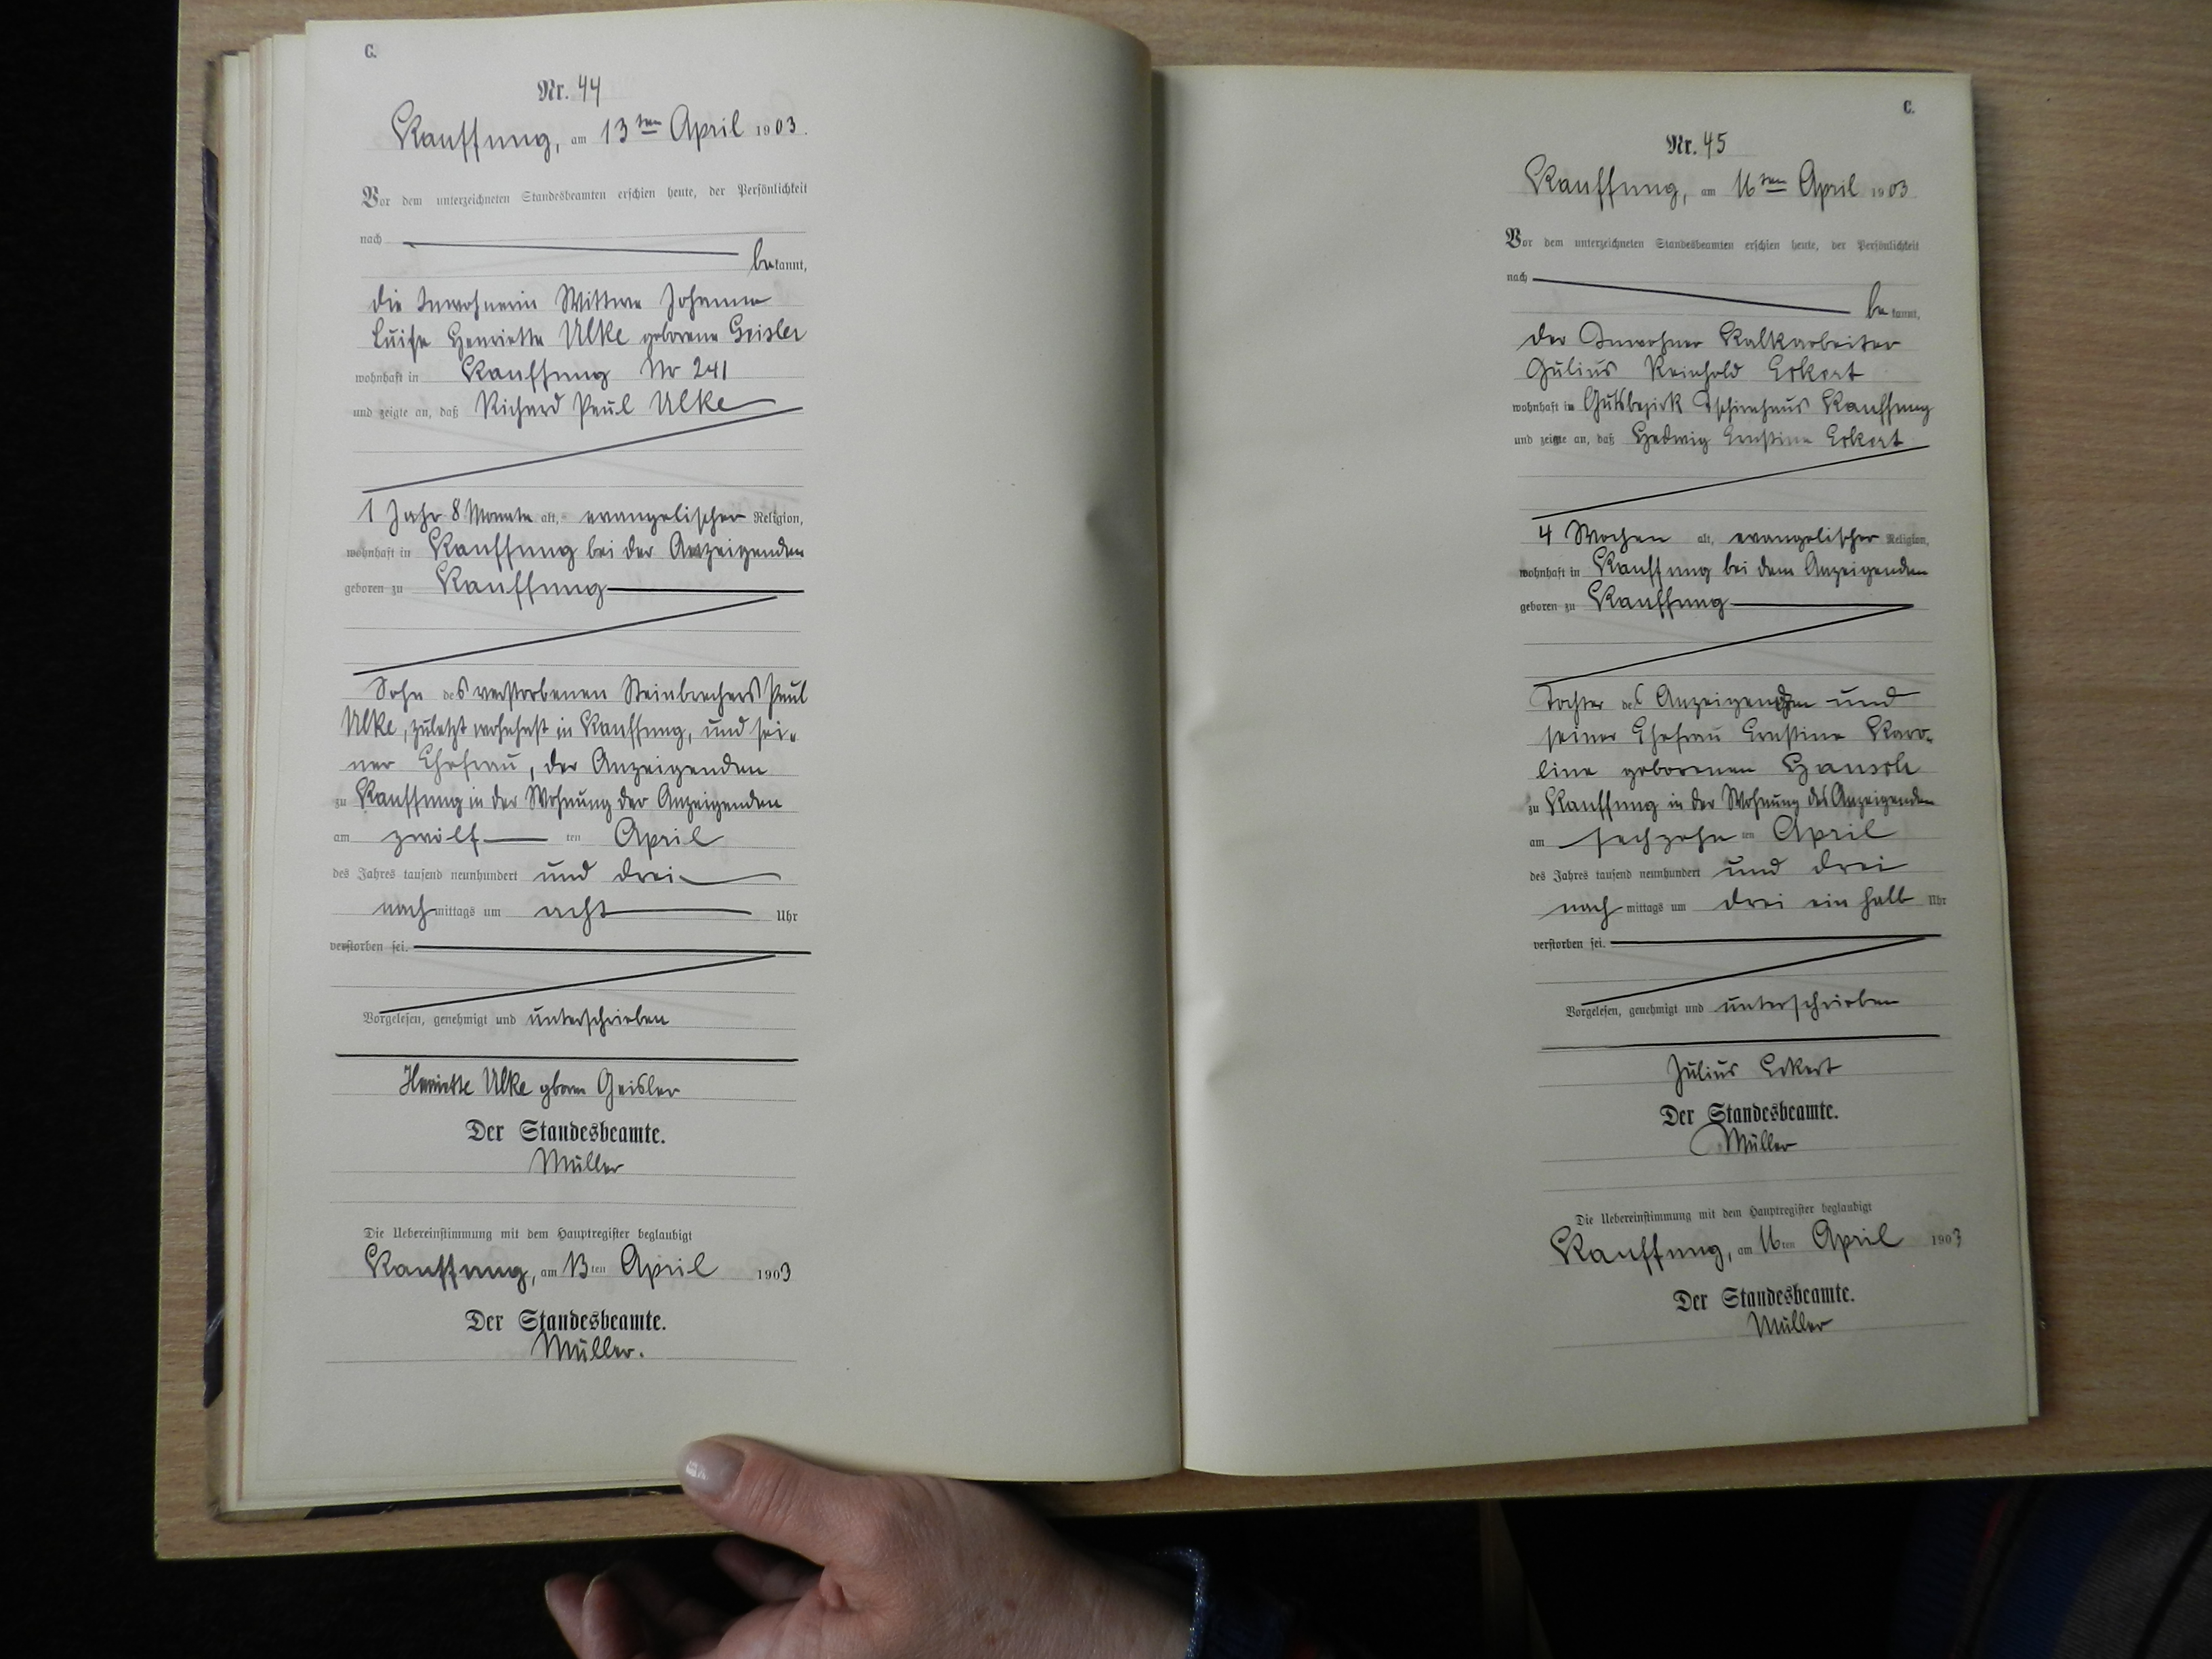 C.
Nr. 44
Kauffung, am 13ten April 1903.
Vor dem unterzeichneten Standesbeamten erschien heute, der Persönlichkeit
nach
bekannt,
die Inwohnerin Wittwe Johanne
Luise Henriette Ulke geborene Geisler
wohnhaft in Kauffung Nr 241
und zeigte an, daß Richard Paul Ulke
1 Jahr 8 Monate alt, evangelischer Religion,
wohnhaft in Kauffung bei der Anzeigenden
geboren zu Kauffung
Sohn des verstorbenen Steinbrechers Paul
Ulke, zuletzt wohnhaft in Kauffung, und sei-
ner Ehefrau, der Anzeigenden
zu Kauffung in der Wohnung der Anzeigenden
am zwölf ten April
des Jahres tausend neunhundert und drei
nachmittags um acht Uhr
verstorben sei.
Vorgelesen, genehmigt und unterschrieben
Henriette Ulke geborne Geisler
Der Standesbeamte.
Müller
Die Uebereinstimmung mit dem Hauptregister beglaubigt
Kauffung, am 13ten April 1903
Der Standesbeamte.
Müller.
C.
Nr. 45
Kauffung, am 16ten April 1903
Vor dem unterzeichneten Standesbeamten erschien heute, der Persönlichkeit
nach
bekannt,
der Inwohner Kalkarbeiter
Julius Reinhold Eckert
wohnhaft in Gutsbezirk Tschirnhaus Kauffung
und zeigte an, daß Hedwig Ernstine Eckert
4 Wochen alt, evangelischer Religion,
wohnhaft in Kauffung bei dem Anzeigenden
geboren zu Kauffung
Tochter des Anzeigenden und
seiner Ehefrau Ernstine Karo-
line geborenen Hansch
zu Kauffung in der Wohnung des Anzeigenden
am sechzehn ten April
des Jahres tausend neunhundert und drei
nachmittags um drei ein halb Uhr
verstorben sei.
Vorgelesen, genehmigt und unterschrieben
Julius Eckert
Der Standesbeamte.
Müller
Die Uebereinstimmung mit dem Hauptregister beglaubigt
Kauffung, am 16ten April 1903
Der Standesbeamte.
Müller